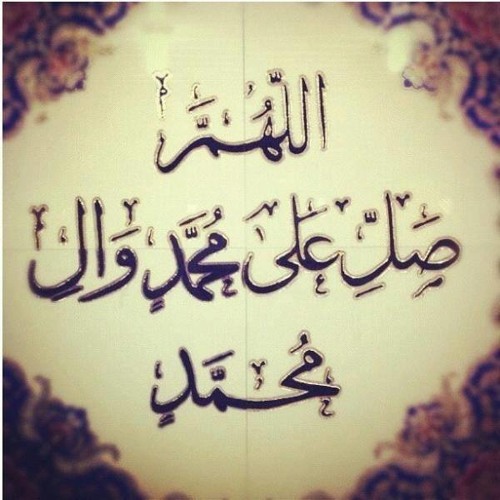 اللّٰهُمَّ
صَلِّ عَلَى مُحَمَّدٍ وَالِ
مُحَمَّدٍ